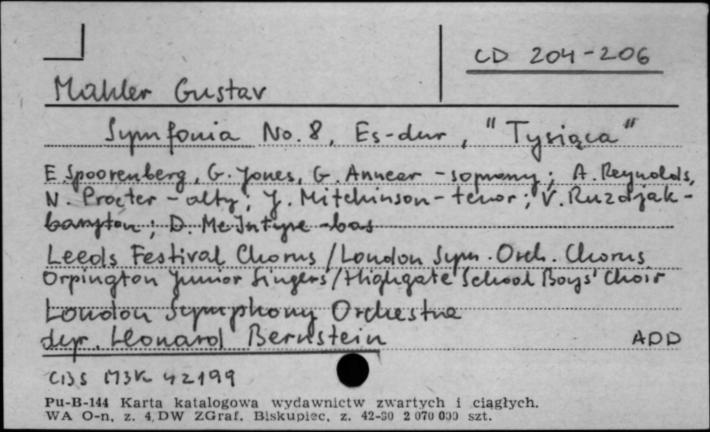 CD 204-206
Mahler Gustav
Symfonia No. 8, Es-dur, "Tysiąca"
E. Spoorenberg, G. Jones, G. Annear - soprany; A. Reynolds,
N. Procter - alty; J. Mitchinson - tenor; V. Ruzdjak -
baryton; D. McIntyre - bas
Leeds Festival Chorus / London Sym. Orch. Chorus
Orpington Junior Singers / Highgate School Boys' Choir
London Symphony Orchestra
dyr. Leonard Bernstein ADD
CBS M3K 42199
Pu-B-144 Karta katalogowa wydawnictw zwartych i ciągłych.
WA O-n, z. 4, DW ZGraf. Biskupiec, z. 42-80 2 070 000 szt.